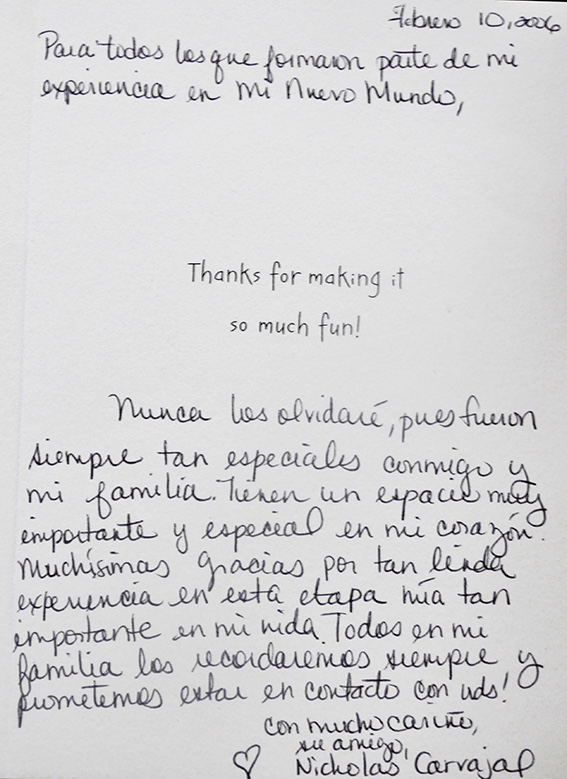 Febrero 10, 2006
Para todos los que formaron parte de mi
experiencia en mi Nuevo Mundo,
Thanks for making it
so much fun!
Nunca los olvidaré, pues fueron
siempre tan especiales conmigo y
mi familia. Tienen un espacio muy
importante y especial en mi corazón.
Muchísimas gracias por tan linda
experiencia en esta etapa mía tan
importante en mi vida. Todos en mi
familia los recordaremos siempre y
prometemos estar en contacto con uds!
con mucho cariño,
su amigo,
♡ Nicholas Carvajal